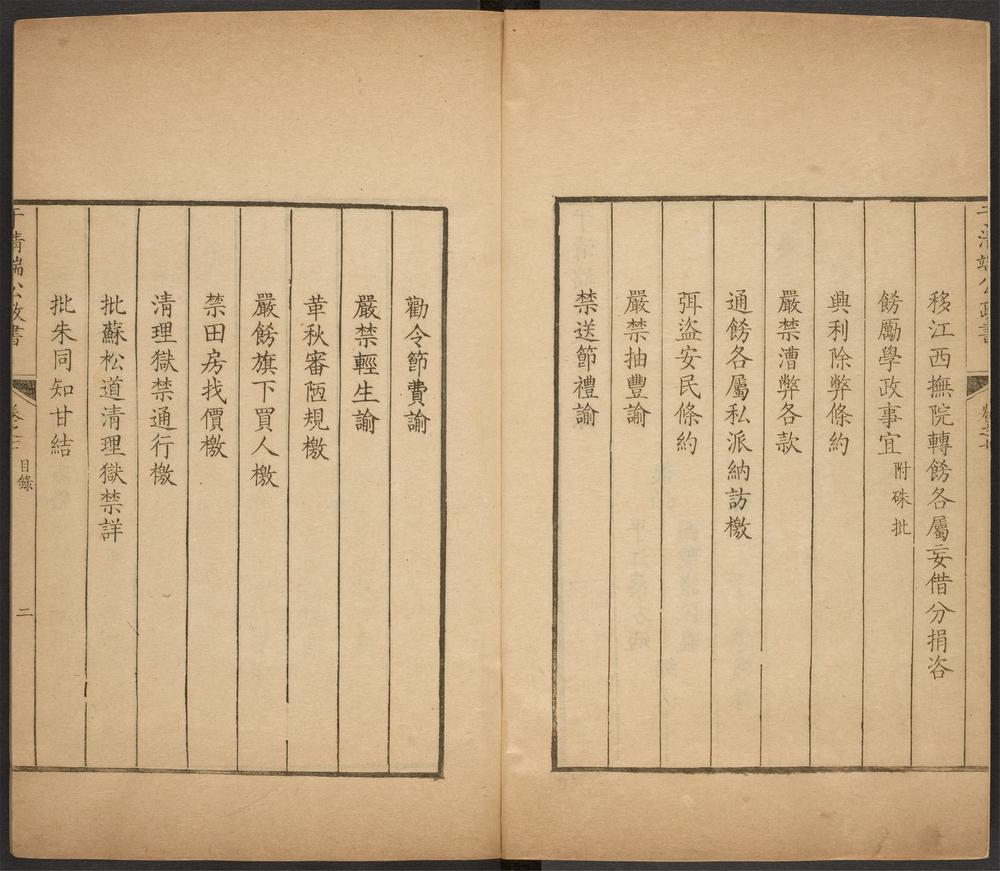 移江西撫院轉餝各屬妄借分捐咨
餝勵學政事宜附硃批
興利除弊條約
嚴禁漕弊各款
通餝各屬私派納訪檄
弭盜安民條約
嚴禁抽豐諭
禁送節禮諭
勸令節費諭
嚴禁輕生諭
革秋審陋規檄
嚴餝旗下買人檄
禁田房找價檄
清理獄禁通行檄
批蘇松道清理獄禁詳
批朱同知甘結
于清端公政書
目錄
二